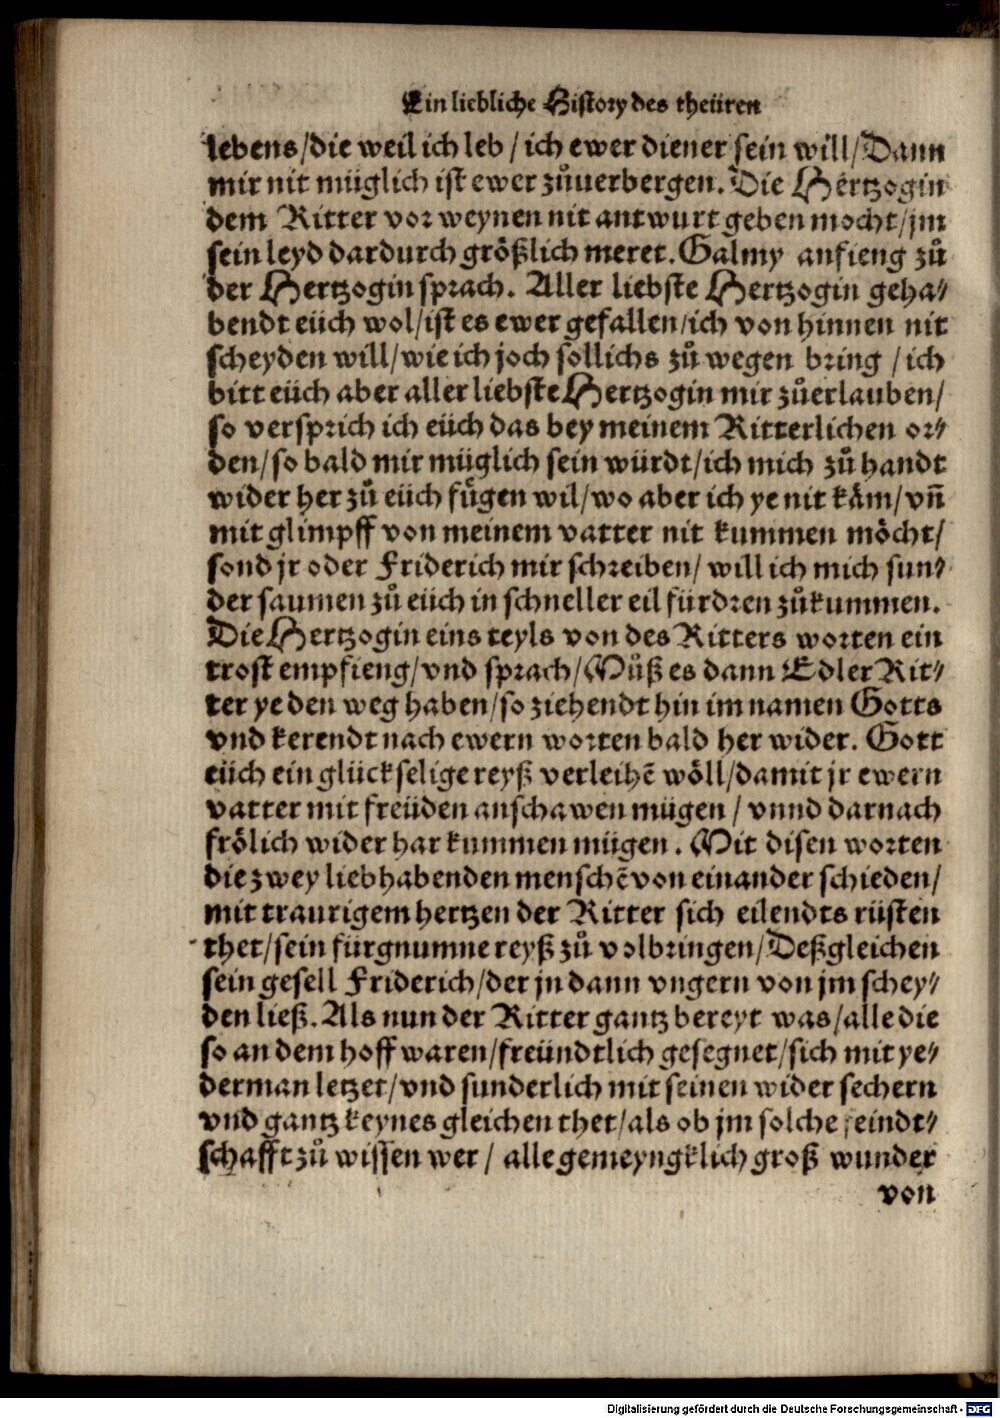 Ein liebliche History des theüren
lebens/die weil ich leb/ich ewer diener sein will/Dann
mir nit müglich ist ewer zůuerbergen. Die Hertzogin
dem Ritter vor weynen nit antwurt geben mocht/jm
sein leyd dardurch größlich meret. Galmy anfieng zů
der Hertzogin sprach. Aller liebste Hertzogin geha-
bendt eüch wol/ist es ewer gefallen/ich von hinnen nit
scheyden will/wie ich joch sollichs zů wegen bring/ich
bitt eüch aber aller liebste Hertzogin mir zůerlauben/
so versprich ich eüch das bey meinem Ritterlichen or-
den/so bald mir müglich sein würdt/ich mich zů handt
wider her zů eüch fůgen wil/wo aber ich ye nit kåm/vñ
mit glimpff von meinem vatter nit kummen möcht/
sond jr oder Friderich mir schreiben/will ich mich sun-
der saumen zů eüch in schneller eil fürdren zůkummen.
Die Hertzogin eins teyls von des Ritters worten ein
trost empfieng/vnd sprach/Můß es dann Edler Rit-
ter ye den weg haben/so ziehendt hin im namen Gotts
vnd kerendt nach ewern worten bald her wider. Gott
eüch ein glückselige reyß verleihẽ wöll/damit jr ewern
vatter mit freüden anschawen mügen/vnnd darnach
frölich wider har kummen mügen. Mit disen worten
die zwey liebhabenden menschẽ von einander schieden/
mit traurigem hertzen der Ritter sich eilendts rüsten
thet/sein fürgnumne reyß zů volbringen/Deßgleichen
sein gesell Friderich/der jn dann vngern von jm schey-
den ließ. Als nun der Ritter gantz bereyt was/alle die
so an dem hoff waren/freündtlich gesegnet/sich mit ye-
derman letzet/vnd sunderlich mit seinen wider sechern
vnd gantz keynes gleichen thet/als ob jm solche feindt-
schafft zů wissen wer/alle gemeyngklich groß wunder
von
Digitalisierung gefördert durch die Deutsche Forschungsgemeinschaft - DFG